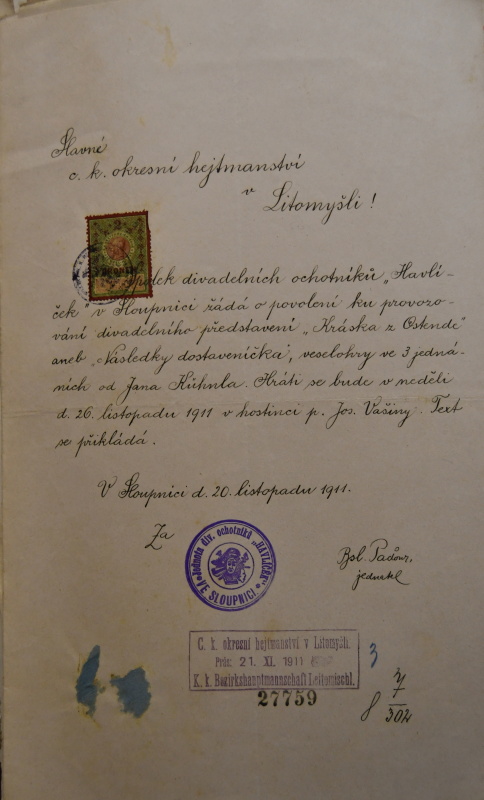 Slavné
c. k. okresní hejtmanství
v
Litomyšli!
Spolek divadelních ochotníků „Havlí-
ček" v Sloupnici žádá o povolení ku provozo-
vání divadelního představení „Kráska z Ostende"
aneb „Následky dostaveníčka", veselohry ve 3 jedná-
ních od Jana Kühnla. Hráti se bude v neděli
d. 26. listopadu 1911 v hostinci p. Jos. Vašiny. Text
se přikládá.
V Sloupnici d. 20. listopadu 1911.
Za
Jednota div. ochotníků „HAVLÍČEK"
VE SLOUPNICI
Bol. Paďour,
jednatel
C. k. okresní hejtmanství v Litomyšli.
Präs: 21. XI. 1911
K. k. Bezirkshauptmannschaft Leitomischl.
27759
3
8
302